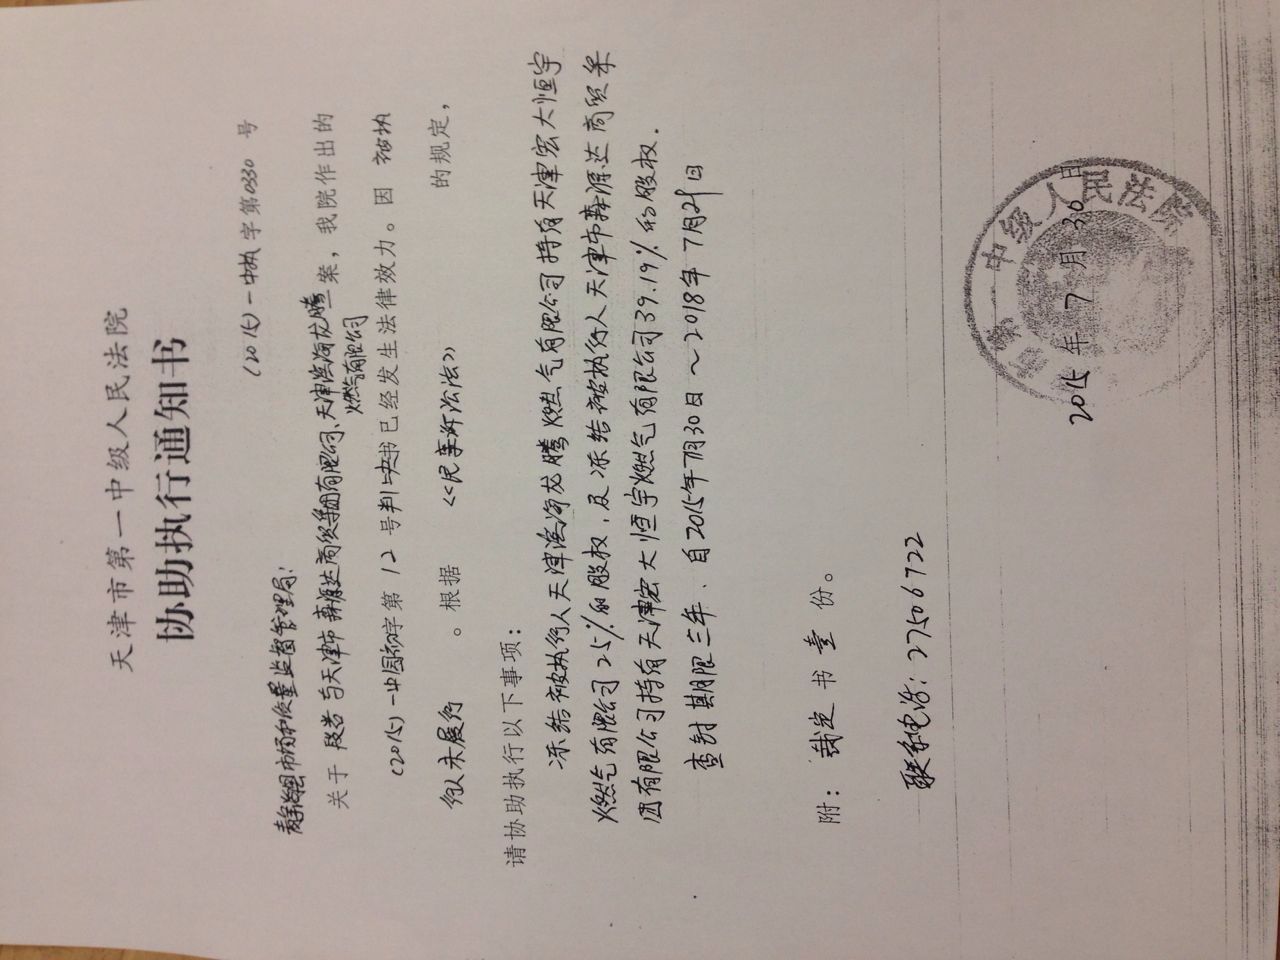 天津市第一中级人民法院
协助执行通知书
(2015)一中执字第0330号
静海县市场和质量监督管理局:
关于 段 与天津市森源达商贸集团有限公司、天津滨海龙腾
燃气有限公司
案,我院作出的
(2015)一中民初字第12号判决书已经发生法律效力。因 被执
行人未履行 。根据 《民事诉讼法》 的规定,
请协助执行以下事项:
冻结被执行人天津滨海龙腾燃气有限公司持有天津宏大恒宇
燃气有限公司25%的股权,及冻结被执行人天津市森源达商贸集
团有限公司持有天津宏大恒宇燃气有限公司39.19%的股权.
查封期限三年.自2015年7月30日~2018年7月29日
附: 裁定 书 壹 份。
联系电话:27506722
2015年7月30日
市第一中级人民法院